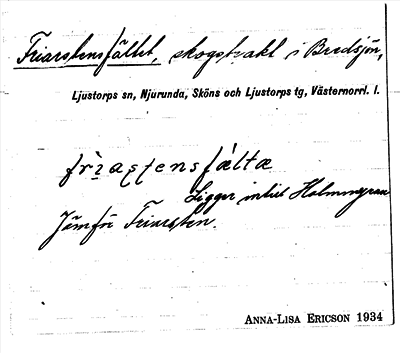 Friarstensfältet, skogstrakt i Bredsjön,
Ljustorps sn, Njurunda, Sköns och Ljustorps tg, Västernorrl. l.
Ligger intill Holmmyran
Jämför Friarsten.
ANNA-LISA ERICSON 1934